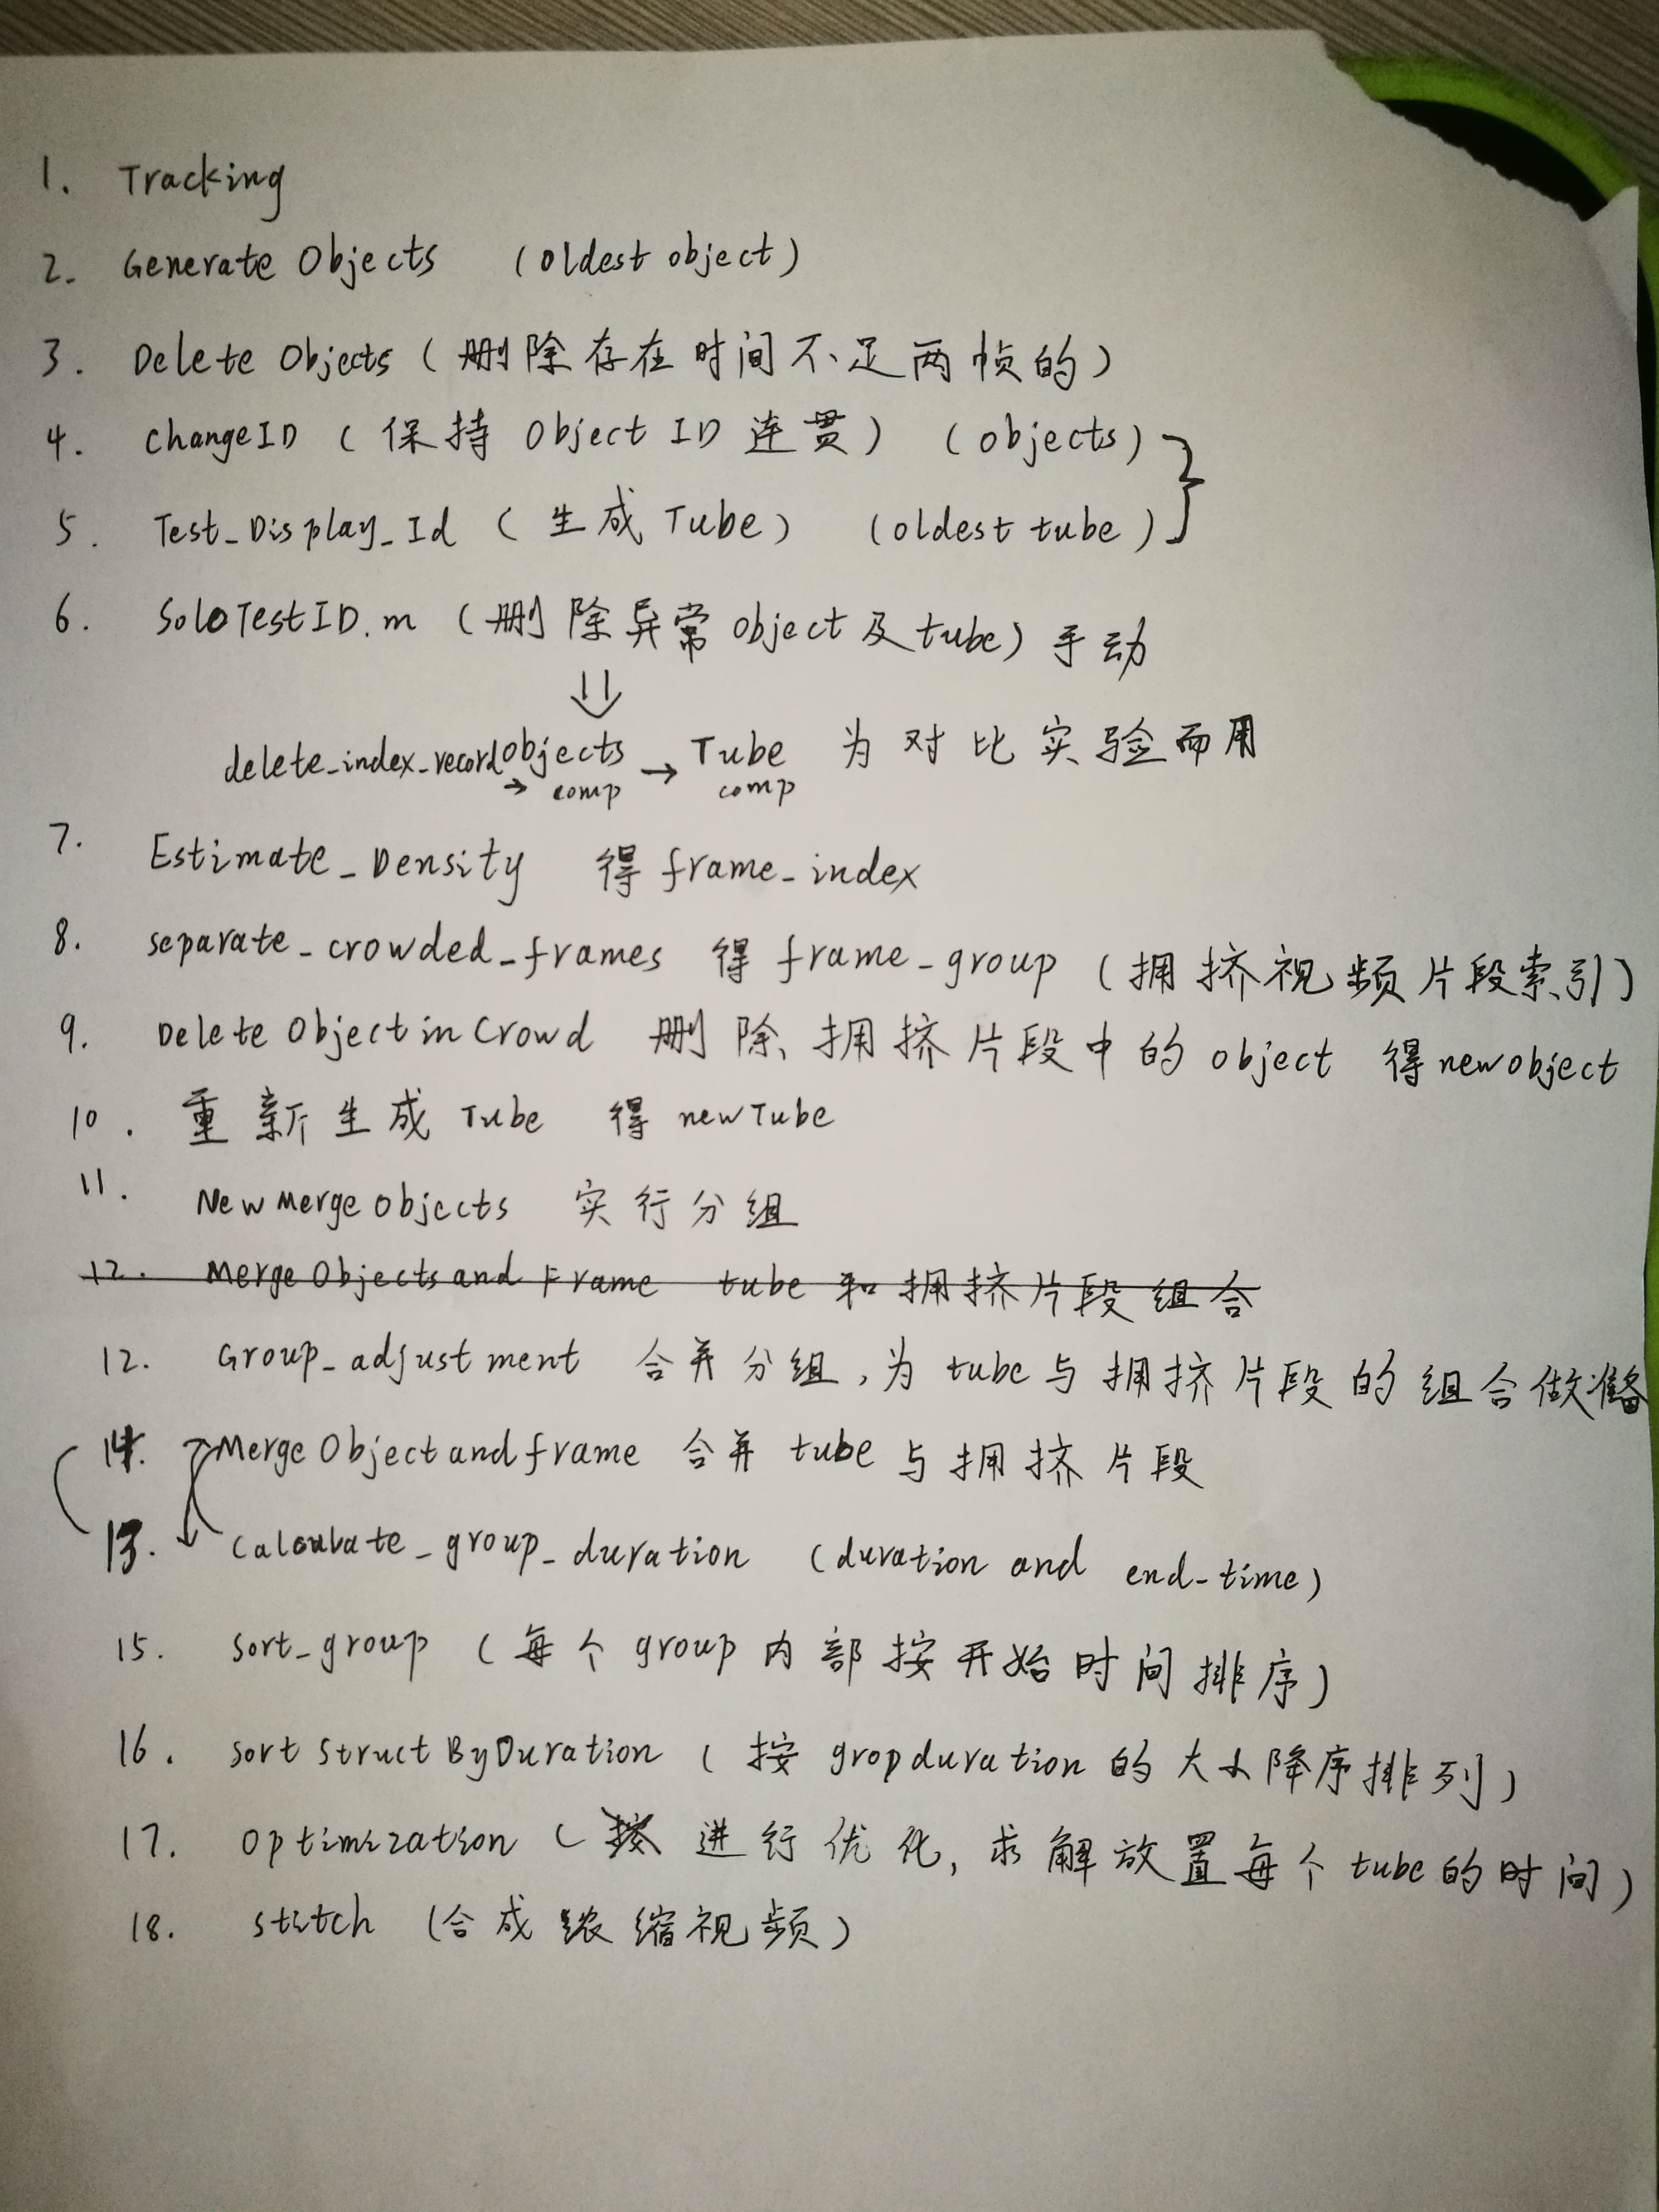 1. Tracking
2. Generate Objects (oldest object)
3. Delete Objects (删除存在时间不足两帧的)
4. changeID (保持 Object ID 连贯) (objects)
5. Test_Display_Id (生成 Tube) (oldest tube)
6. SoloTestID.m (删除异常 object 及 tube) 手动
⇓
delete_index_record → objects → Tube 为对比实验而用
comp comp
7. Estimate_Density 得 frame_index
8. separate_crowded_frames 得 frame_group (拥挤视频片段索引)
9. Delete Object in Crowd 删除拥挤片段中的 object 得 newobject
10. 重新生成 Tube 得 newTube
11. New Merge Objects 实行分组
12. Merge Objects and Frame tube 和拥挤片段组合
12. Group_adjustment 合并分组,为 tube 与拥挤片段的组合做准备
14. Merge Object and frame 合并 tube 与拥挤片段
13. Calculate_group_duration (duration and end-time)
15. sort_group (每个 group 内部按开始时间排序)
16. sort Struct By Duration (按 gropduration 的大小降序排列)
17. Optimization (进行优化,求解放置每个 tube 的时间)
18. stitch (合成浓缩视频)